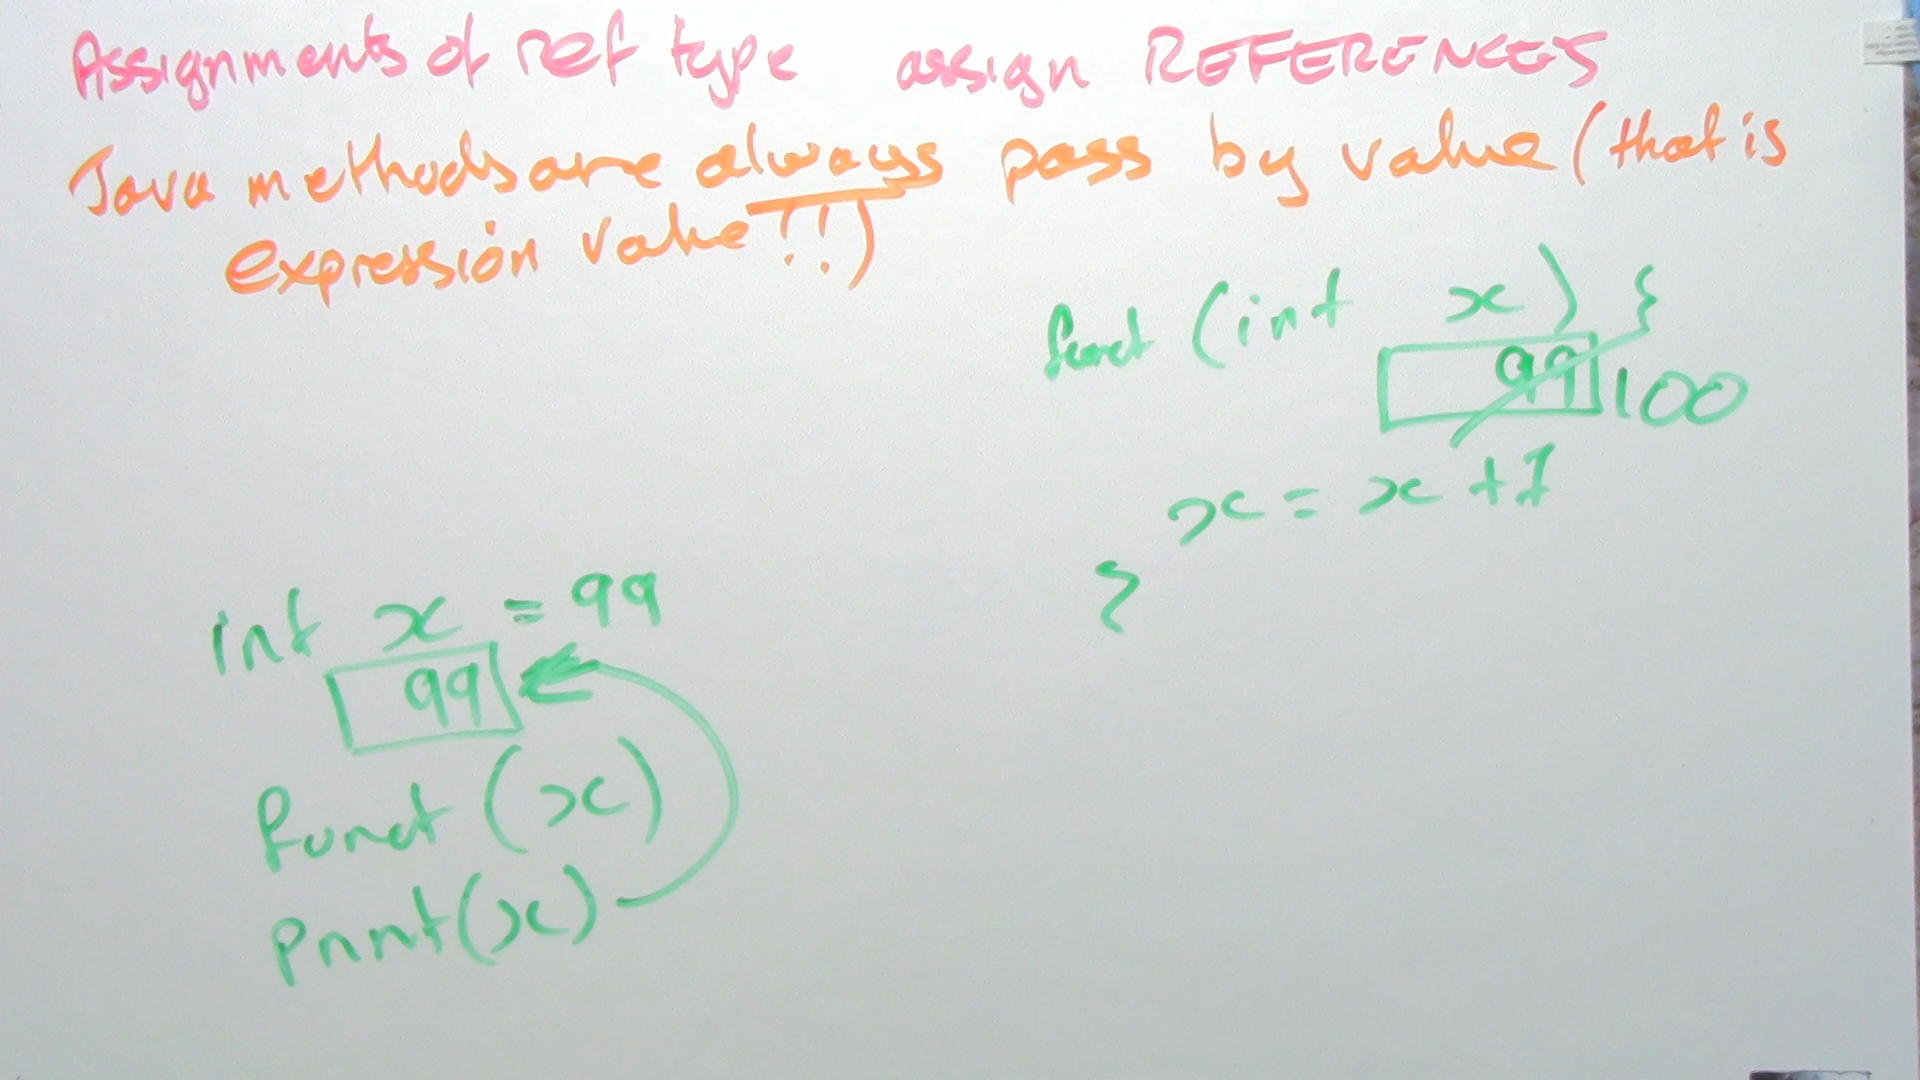 Assignments of ref type assign REFERENCES
Java methods are always pass by value (that is
expression value!!)
funct (int x) {
99 100
x = x + 1
}
int x = 99
99
funct (x)
print(x)